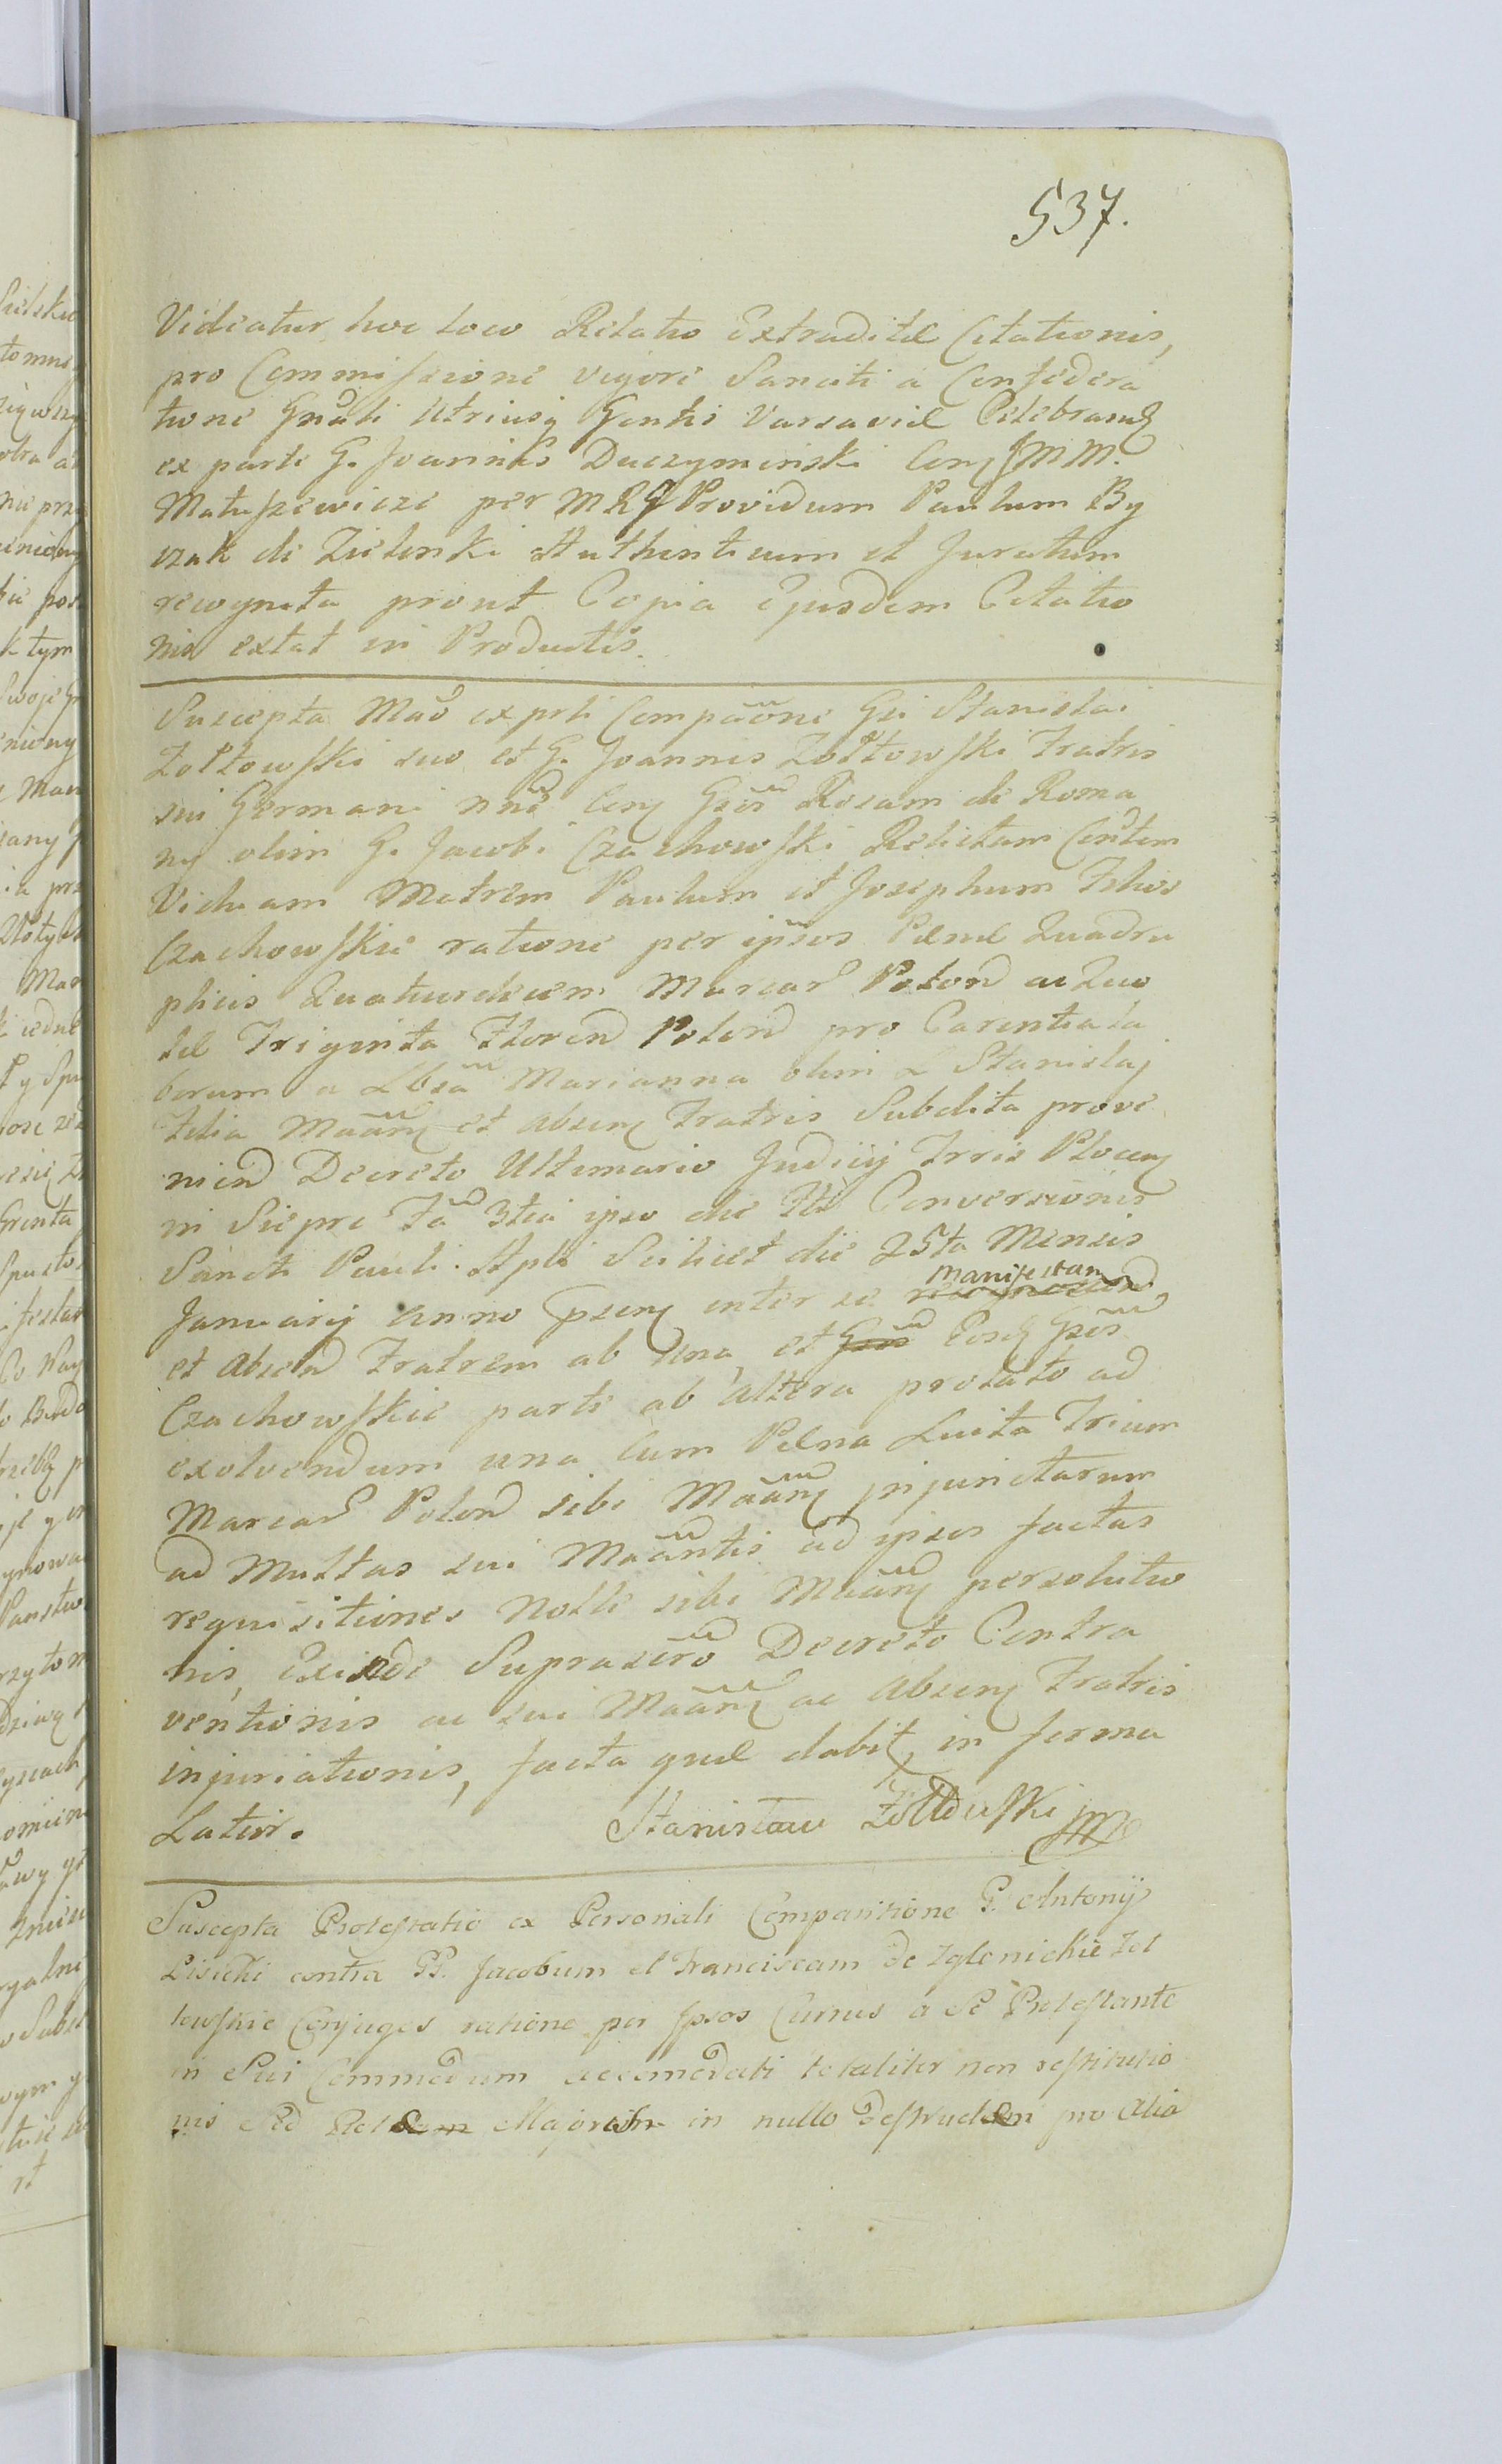 537.
Videatur hoc loco Relatio Extraditæ Citationis,
pro Commissione vigore Sanciti a Confædera
tione Gnâli Utriusq Gentis Varsaviæ Celebrand
ex parte G. Joannis Duczyminski Con MM.
Matuszewicze per MRG Providum Paulum By
czak de Zielonki Authenticum et Juratum
recognita prout Copia Ejusdem Citatio
nis extat in Productis.
Suscepta Mão ex prli Compãone Gsi Stanislai
Zołtowski suo et G. Joannis Zołtowski Fratris
sui Germani nne Con Gsos Rosam de Roma
ny olim G. Jacobi Czachowski Relictam Contem
Viduam Matrem Paulum et Josephum Filios
Czachowskie ratione per ipsos Pænæ Quadru
plicis Quatuordecem Marcar Polon ac Quo
tæ Triginta Floren Polon pro Carentia la
borum a Lbsa Marianna olim L Stanislaj
Filia Mãan et absen Fratris Subdita prove
nien Decreto Ultimario Judicij Trris Plocen
in Sieprc Fa 3tia ipso die Fti Conversionis
Sancti Pauli Apli Scilicet die 25ta Mensis
Januarij Anno Psen inter se recognoscen manifestan
et absen Fratrem ab una, et Gsos Cosd Gsos
Czachowskie parte ab altera prolato ad
exolvendum una cum Pæna Luita Trium
Marcar Polon sibi Mãan injunctarum
ad Multas sui Mãantis ad ipsos factas
requisitiones Nolle sibi Mãan persolutio
nis, Exinde Suprascro Decreto Contra
ventionis ac sui Mãan ac absen Fratris
injuriationis, facta quæ dabit, in forma
Latior. Stanisław Zołtowski mp
Suscepta Protestatio ex Personali Comparitione G. Antonij
Lisicki contra GG. Jacobum et Franciscam de Zglenickie Zol
towskie Conjuges ratione per Ipsos Currus a Se Protestante
in Sui Commodum accomodati totaliter non restitutio
nis Sed in nullo pro alio